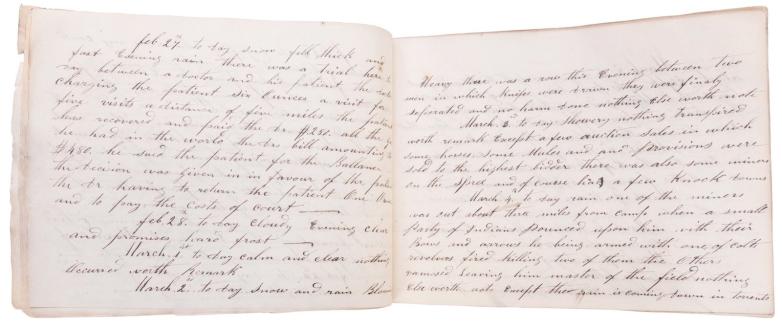 feb 27th to day snow fell thick and
fast Evening rain there was a trial here to
day between a doctor and his patient the
charging the patient six Ounces a visit for
five visits a distance of five miles the patient
has recovered and paid the dr $280. all the
he had in the world the drs bill amounting
$480. he said the patient for the Ballance
the decision was given in in favour of the
the dr having to return the patient One
and to pay the Costs of Court
feb 28th to day Cloudy Evening clear
and promises hard frost
March 1st to day calm and clear nothing
Occurred worth Remark
March 2d to day snow and rain
Heavy there was a row this Evening between two
men in which knifes were drawn they were finaly
seperated and no harm done nothing Else worth note
March 3d to day showery nothing transpired
worth remark Except a few auction sales in which
some horses some Mules and and provisions were
sold to the highest bidder there was also some miners
on the spree and of course had a few Knock downs
March 4th to day rain one of the miners
was out about three miles from camp when a small
Party of Indians pounced upon him with their
Bows and arrows he being armed with one of colts
revolvers fired killing two of them the Others
vamosed leaving him master of the field nothing
Else worth note Except the rain is coming down in torrents